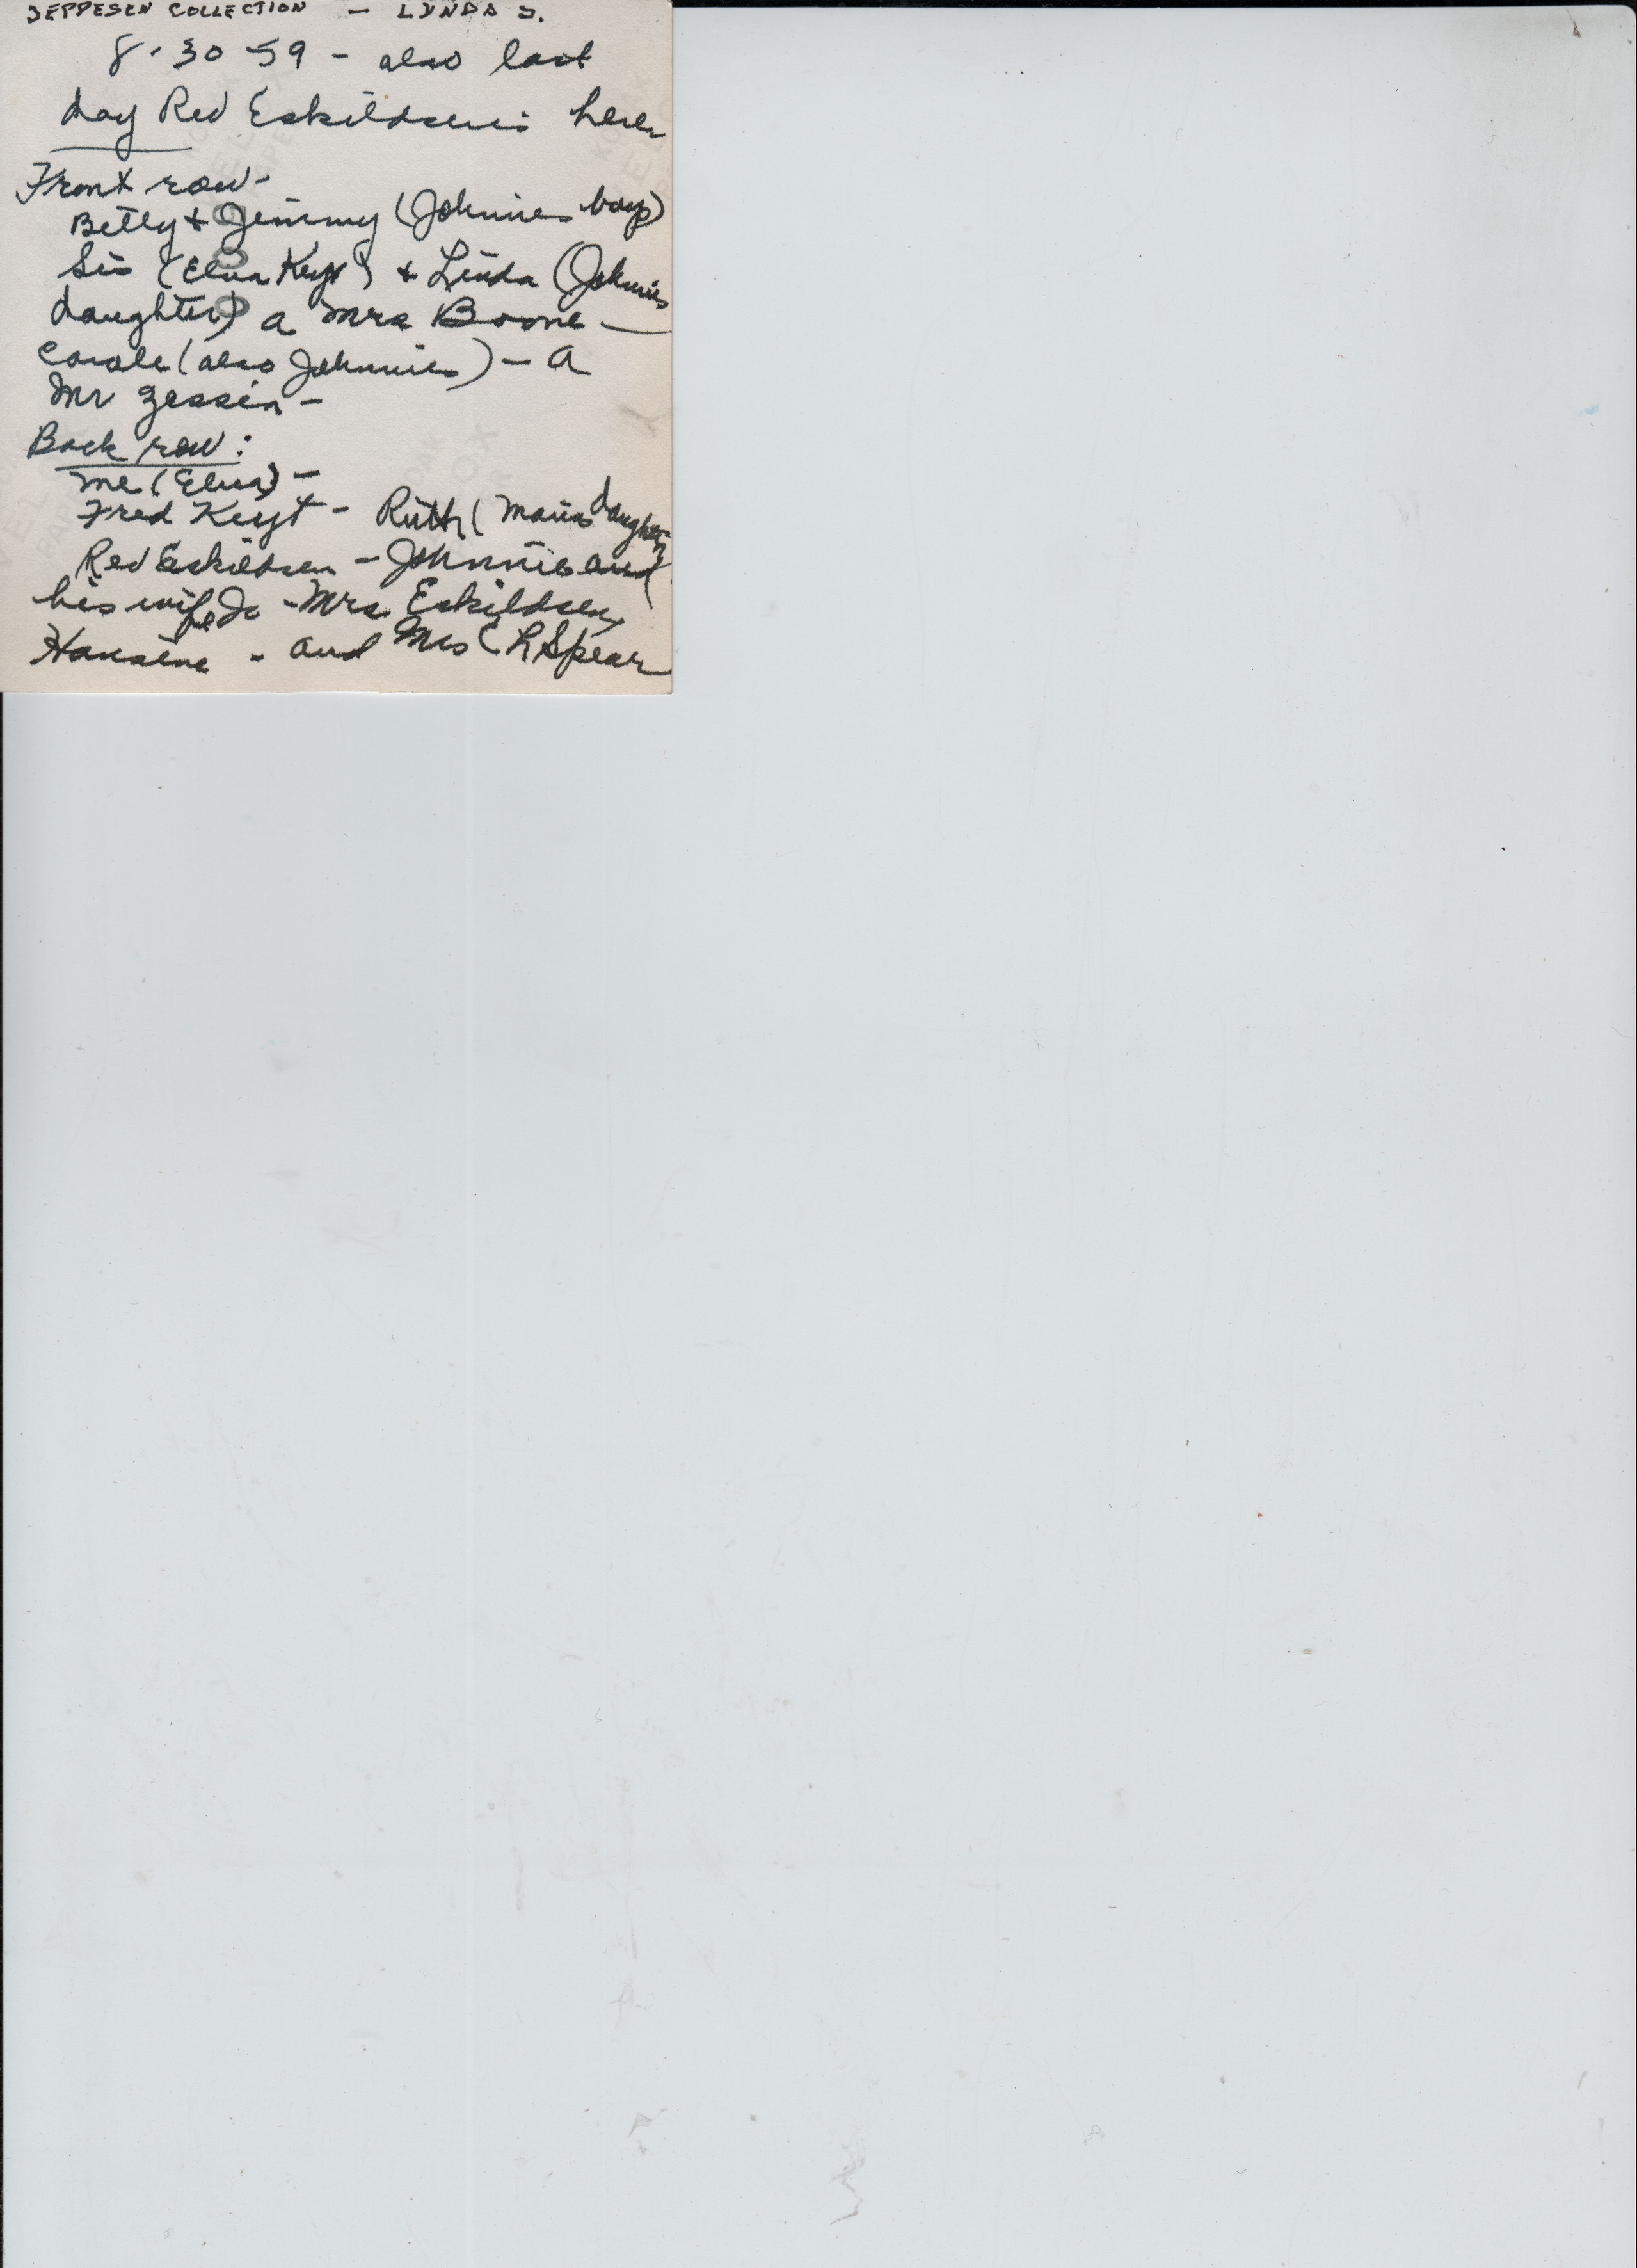 JEPPESEN COLLECTION - LYNDA J.
8-30-59 - also last
day Red Eskildsens here
Front row-
Betty + Jimmy (Johnnies boy)
Sis (Elna Keyt) + Linda (Johnnies
daughter) a Mrs Boone -
Carole (also Johnnies) - a
Mr
Back row:
me (Elna) -
Fred Keyt - Ruth (Marias daughter)
Red Eskildsen - Johnnie and
his wife Jo - Mrs Eskildsen
Hansine - and Mrs Spear